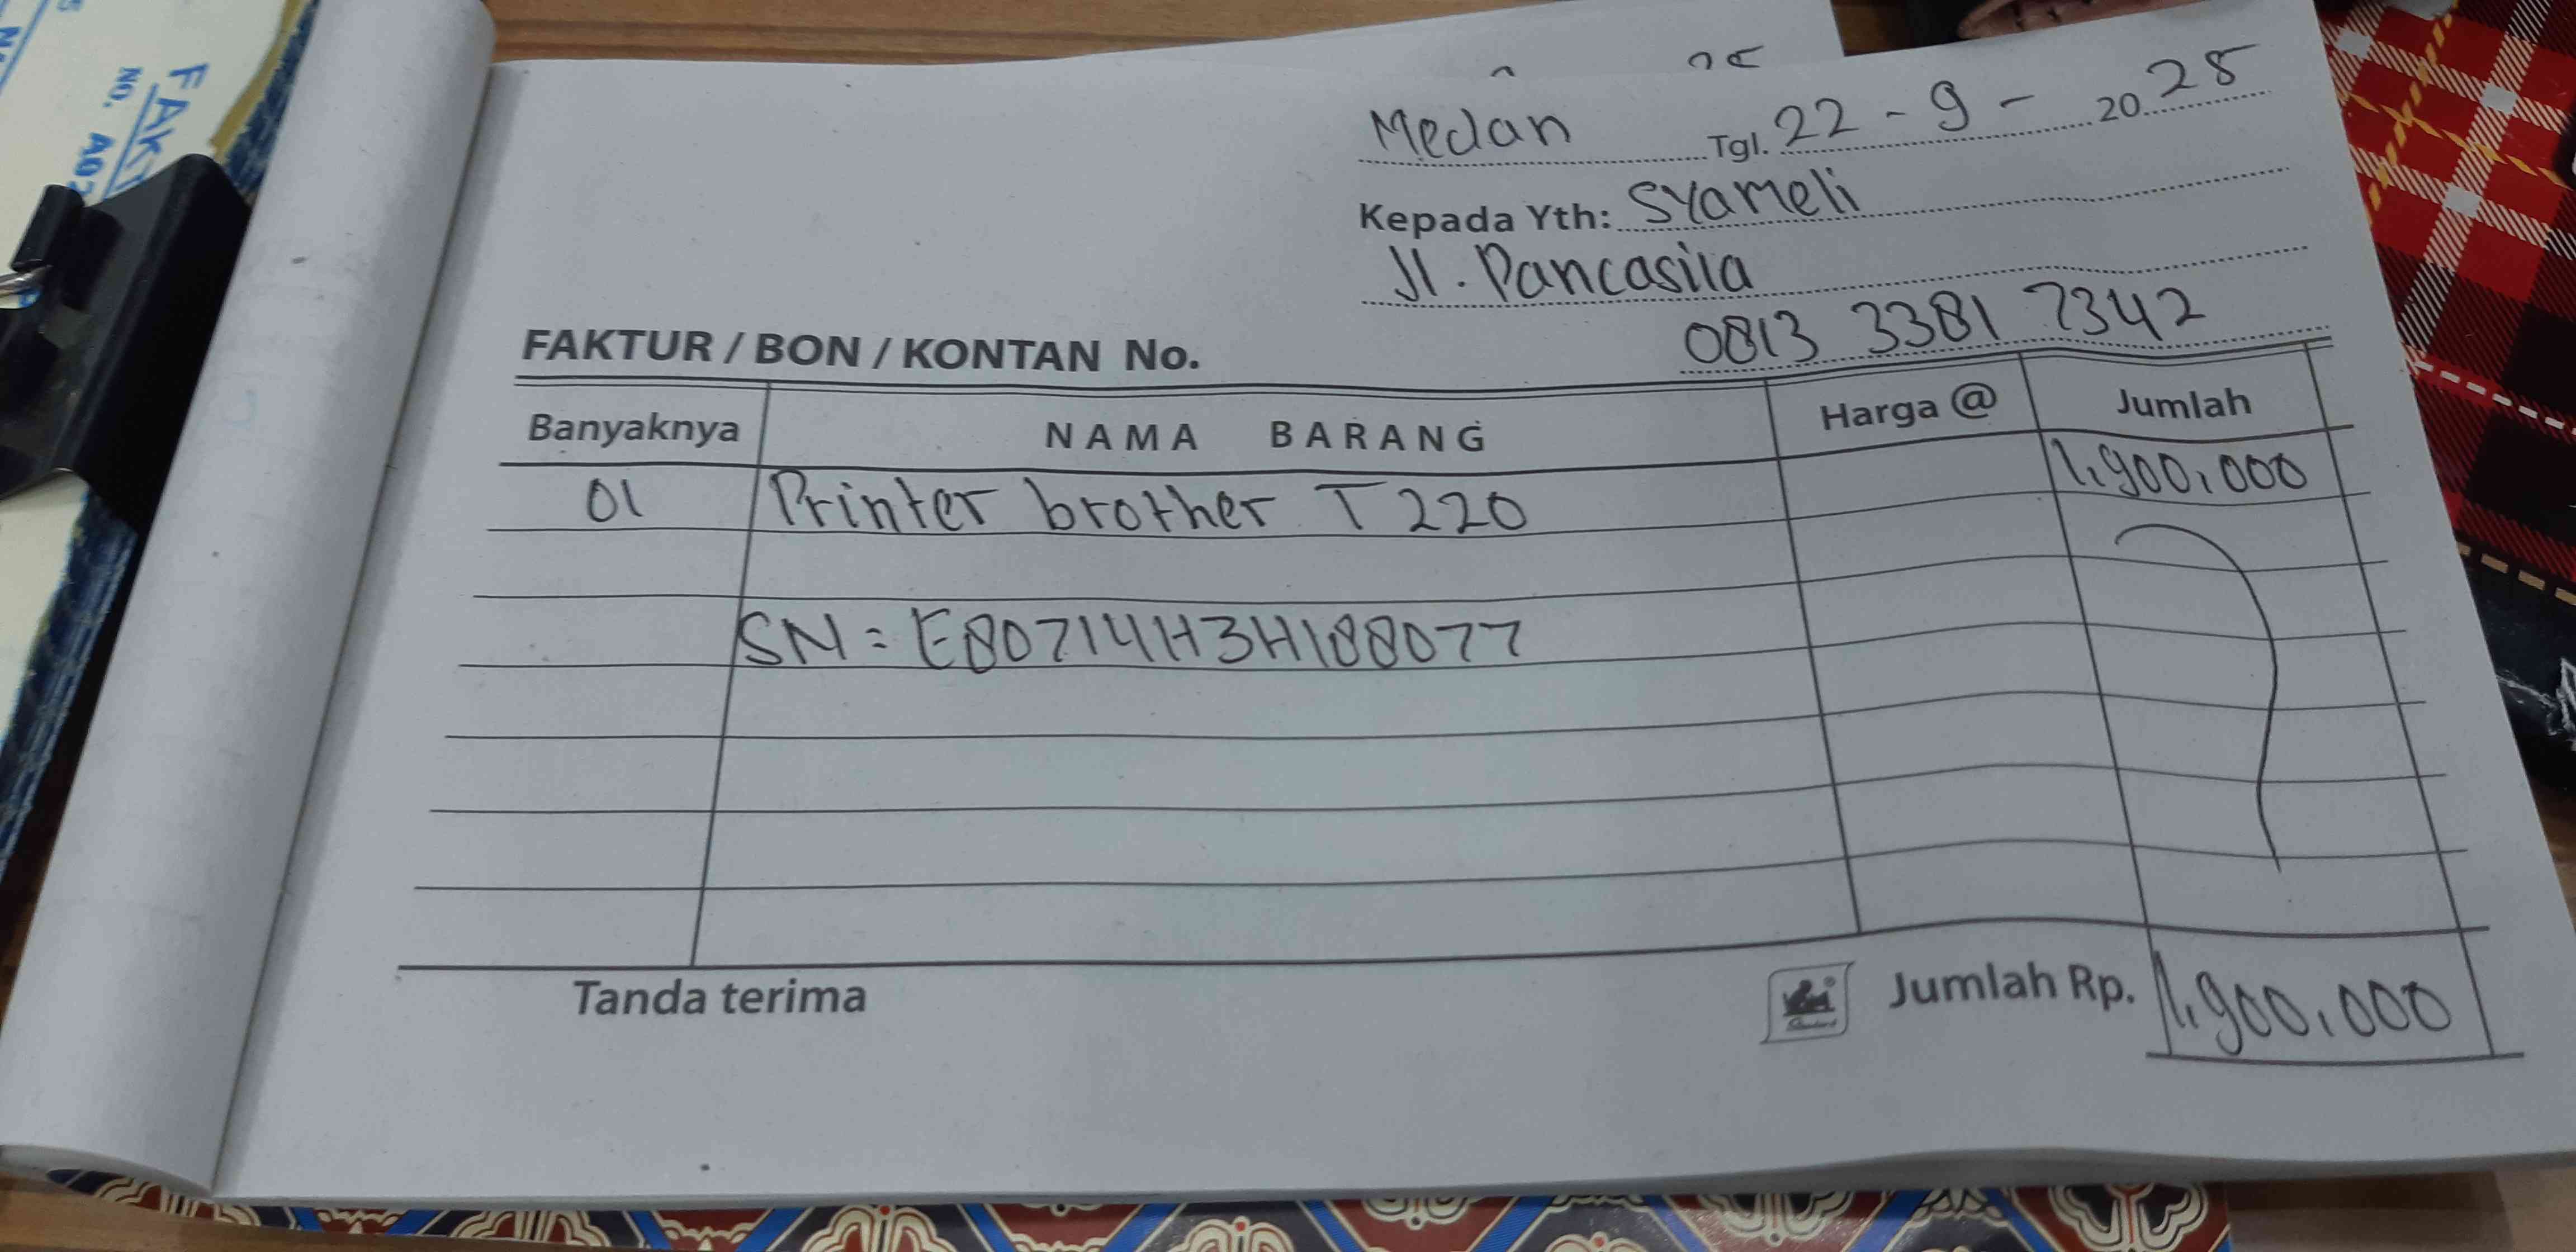 FAKTUR
NO. A0
Medan Tgl. 22 - 9 - 20 25
Kepada Yth: Syameli
Jl. Pancasila
0813 3381 7342
FAKTUR / BON / KONTAN No.
Banyaknya NAMA BARANG Harga @ Jumlah
01 Printer brother T220 1,900,000
SN = E80714H3H188077
Tanda terima Jumlah Rp. 1,900,000